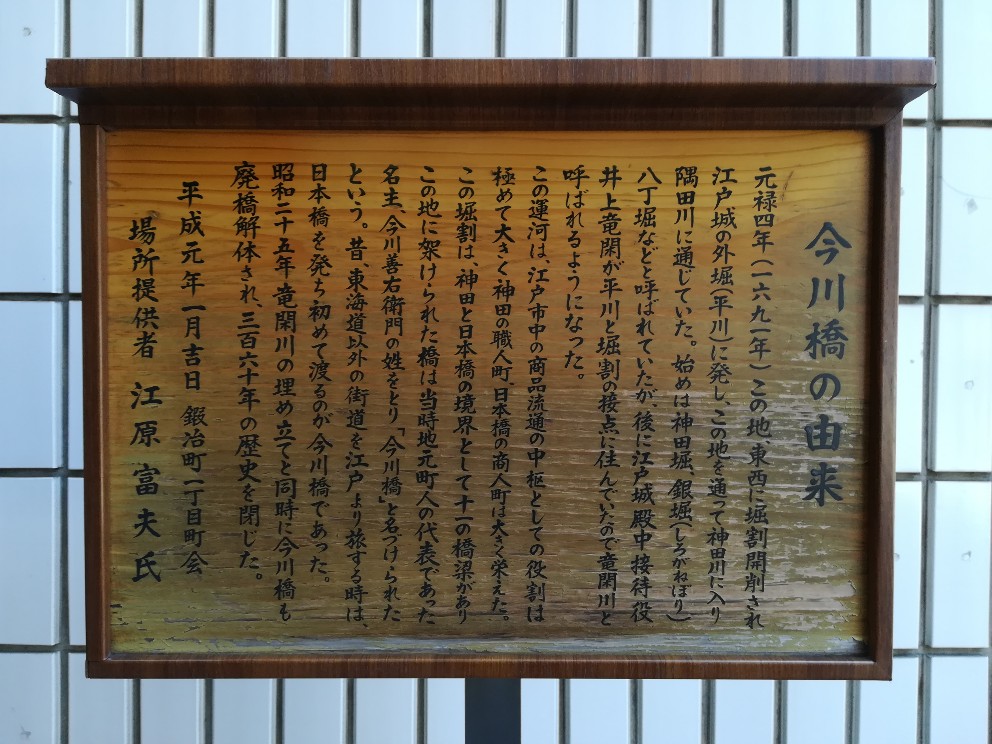 今川橋の由来
元禄四年(一六九一年)この地、東西に堀割開削され
江戸城の外堀(平川)に発し、この地を通って神田川に入り
隅田川に通じていた。始めは神田堀、銀堀(しろがねぼり)
八丁堀などと呼ばれていたが、後に江戸城殿中接待役
井上竜閑が平川と堀割の接点に住んでいたので竜閑川と
呼ばれるようになった。
この運河は、江戸市中の商品流通の中枢としての役割は
極めて大きく神田の職人町、日本橋の商人町は大きく栄えた。
この堀割は、神田と日本橋の境界として十一の橋梁があり
この地に架けられた橋は当時地元町人の代表であった
名主、今川善右衛門の姓をとり「今川橋」と名づけられた
という。昔、東海道以外の街道を江戸より旅する時は、
日本橋を発ち初めて渡るのが今川橋であった。
昭和二十五年竜閑川の埋め立てと同時に今川橋も
廃橋解体され、三百六十年の歴史を閉じた。
平成元年一月吉日 鍛冶町一丁目町会
場所提供者 江原富夫氏